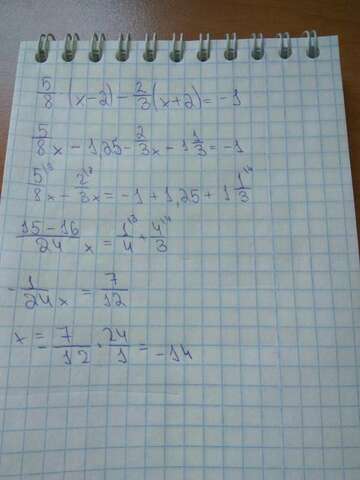 5/8 (x-2) - 2/3 (x+2) = -1
5/8 x - 1,25 - 2/3 x - 1 1/3 = -1
5^13/8 x - 2^18/3 x = -1 + 1,25 + 1 1^14/3
15-16/24 x = 1^13/4 + 4^14/3
-1/24 x = 7/12
x = 7/12 · 24/1 = -14